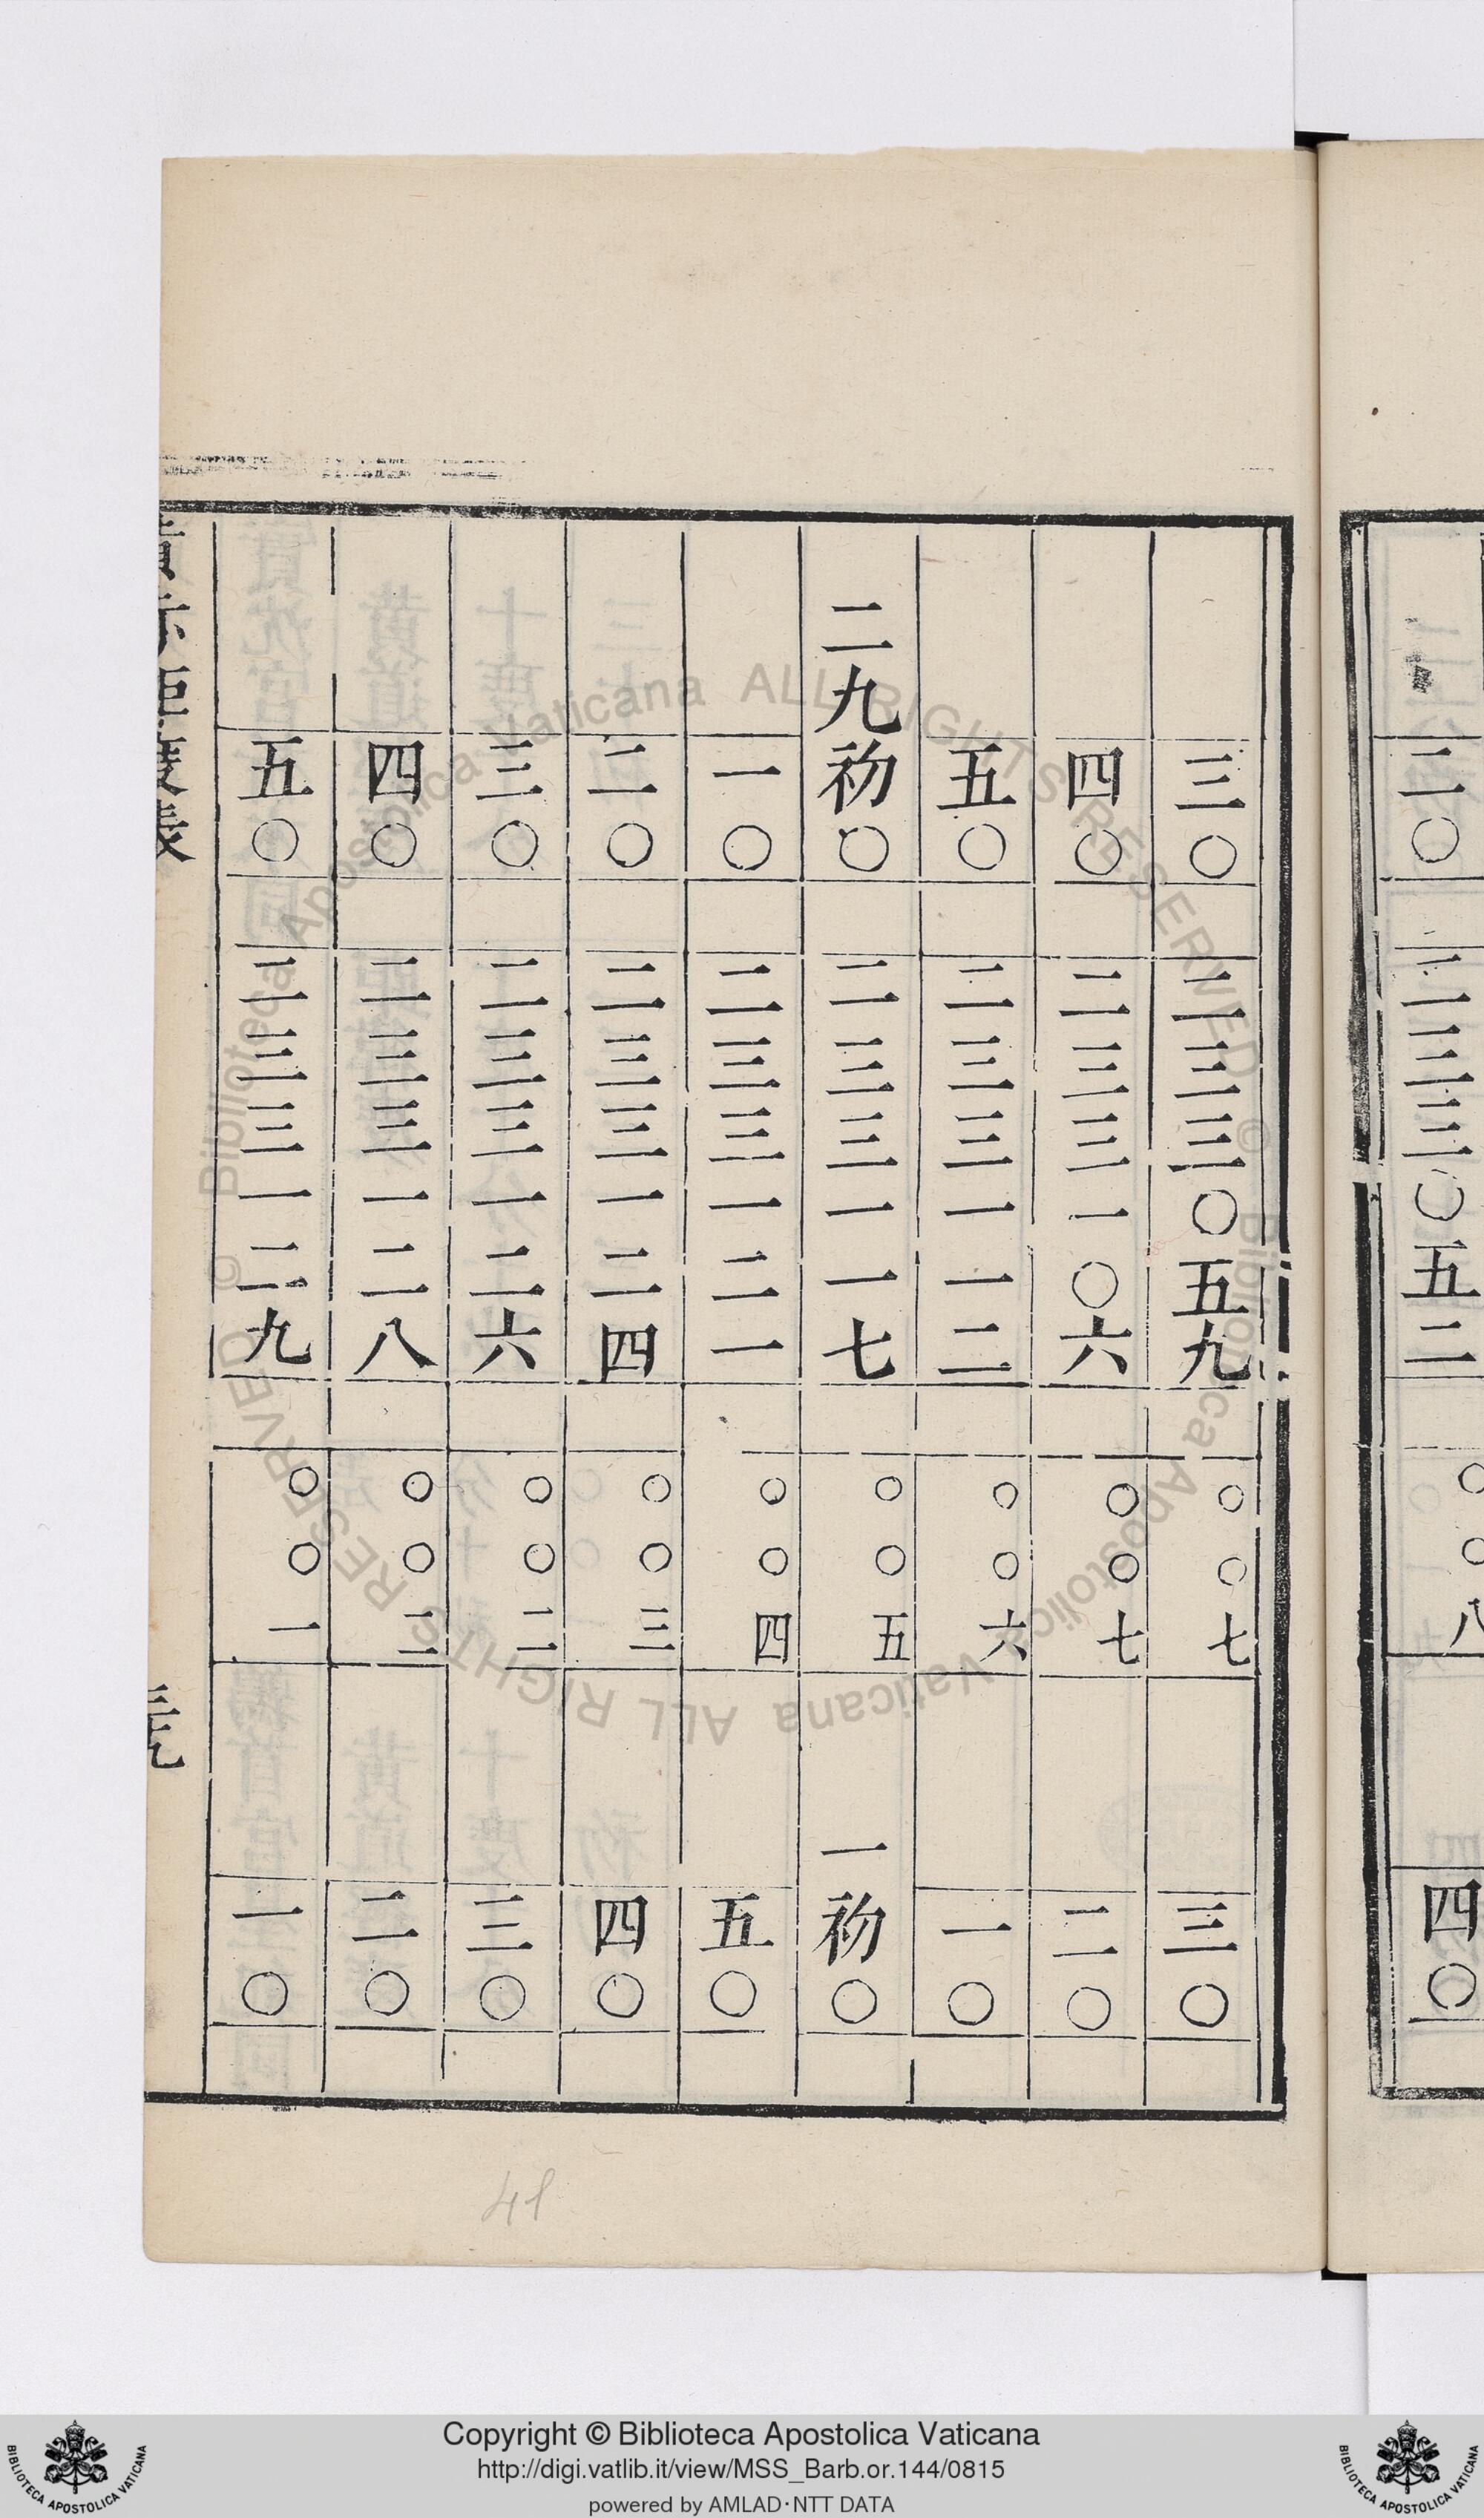 二〇 二三三〇五二 〇〇八 四〇
三〇 二三三〇五九 〇〇七 三〇
四〇 二三三一〇六 〇〇七 二〇
五〇 二三三一一二 〇〇六 一〇
二九初〇 二三三一一七 〇〇五 一初〇
一〇 二三三一二一 〇〇四 五〇
二〇 二三三一二四 〇〇三 四〇
三〇 二三三一二六 〇〇二 三〇
四〇 二三三一二八 〇〇二 二〇
五〇 二三三一二九 〇〇一 一〇
41
© Biblioteca Apostolica Vaticana ALL RIGHTS RESERVED © Biblioteca Apostolica Vaticana ALL RIGHTS RESERVED
Copyright © Biblioteca Apostolica Vaticana
http://digi.vatlib.it/view/MSS_Barb.or.144/0815
powered by AMLAD·NTT DATA
BIBLIOTECA APOSTOLICA VATICANA
BIBLIOTECA APOSTOLICA VATICANA